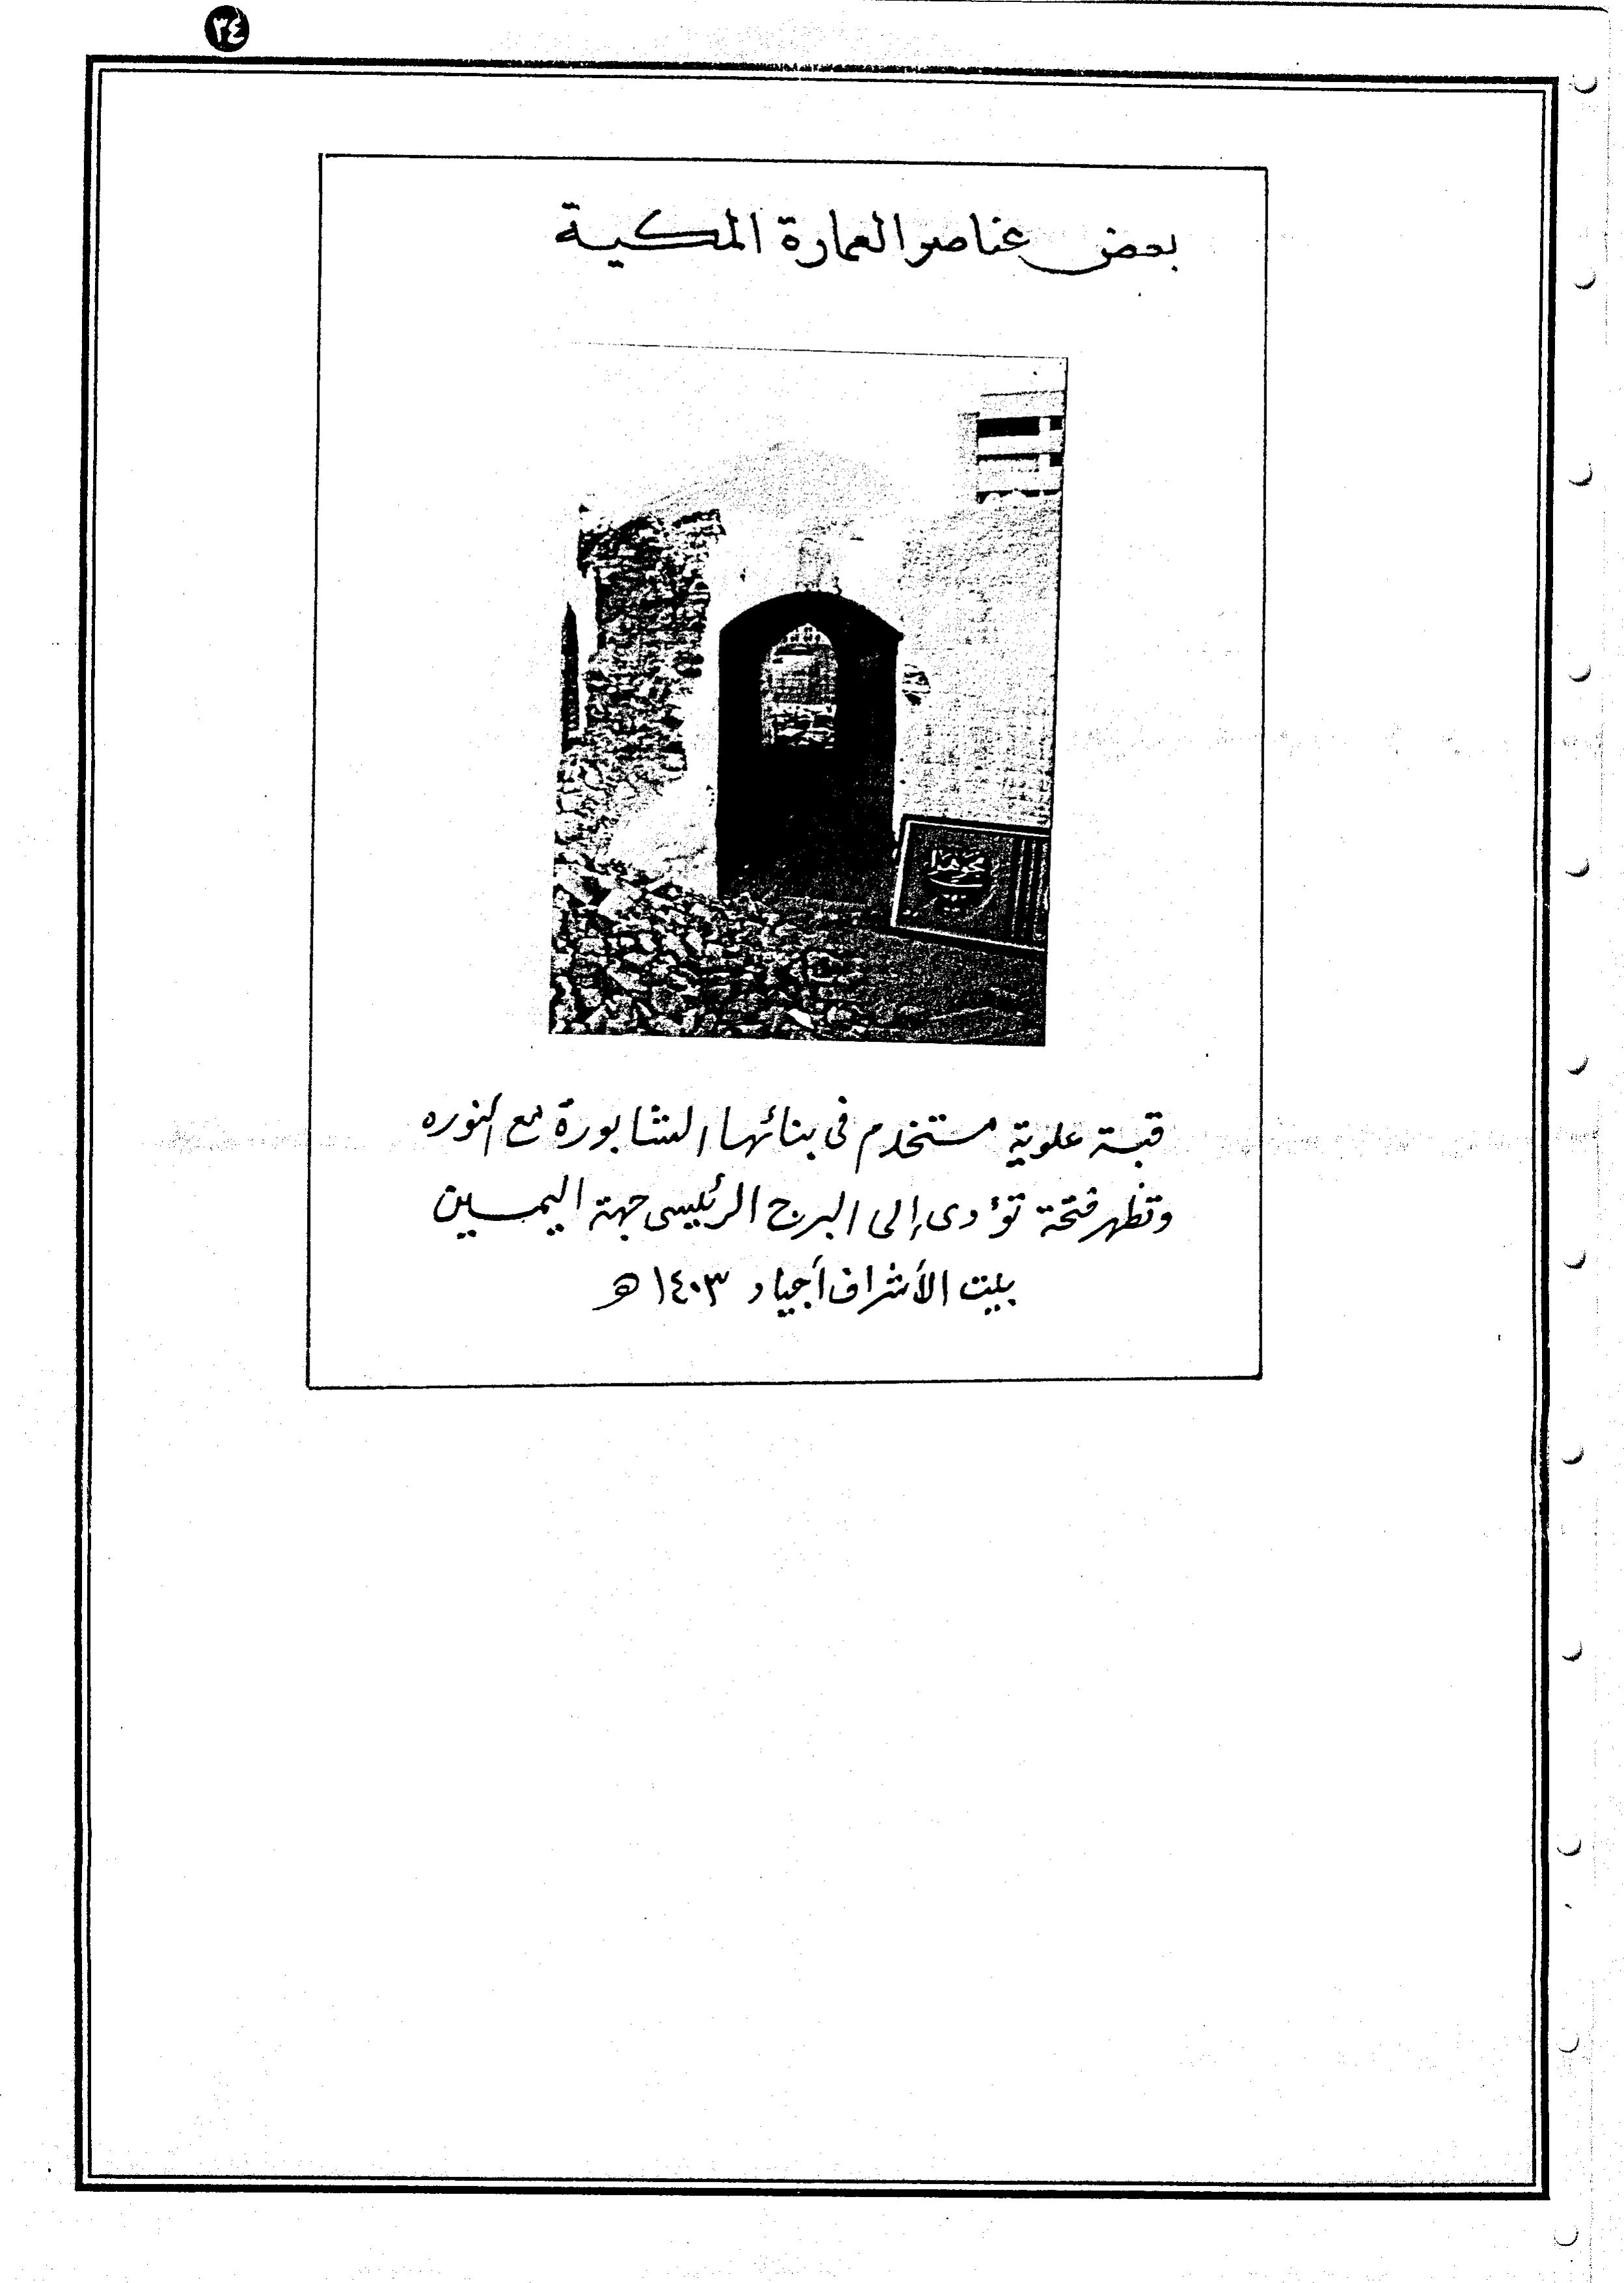 ٣٤
بعض عناصر العمارة المكية
قبة علوية مستخدم فى بنائها الشابورة مع النوره
وتظهر فتحة تؤدى إلى البرج الرئيسى جهة اليمين
بيت الأشراف أجياد ١٤٠٣ هـ